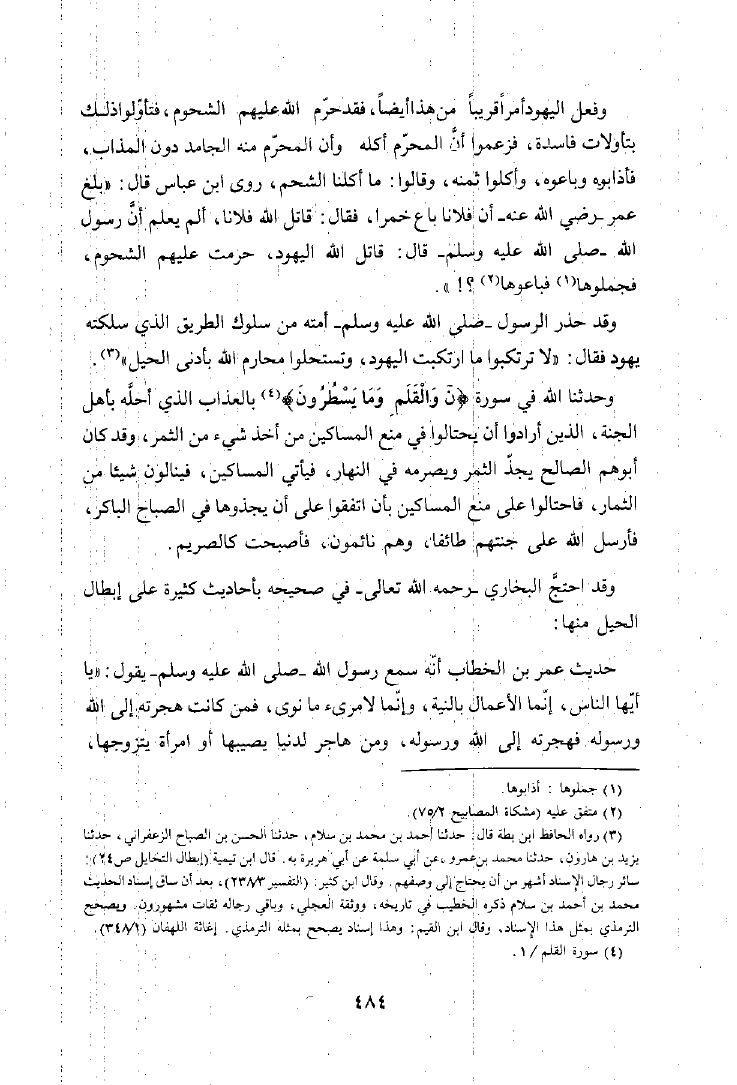 وفعل اليهود أمراً قريباً من هذا أيضاً، فقد حرّم الله عليهم الشحوم، فتأوّلوا ذلك
بتأولات فاسدة، فزعموا أنَّ المحرّم أكله وأن المحرّم منه الجامد دون المذاب،
فأذابوه وباعوه، وأكلوا ثمنه، وقالوا: ما أكلنا الشحم، روى ابن عباس قال: «بلغ
عمر ـرضي الله عنه ـ أن فلانا باع خمرا، فقال: قاتل الله فلانا، ألم يعلم أنَّ رسول
الله ـصلى الله عليه وسلم ـ قال: قاتل الله اليهود، حرمت عليهم الشحوم،
فجملوها(١) فباعوها(٢) ؟! ».
وقد حذر الرسول ـصلى الله عليه وسلم ـ أمته من سلوك الطريق الذي سلكته
يهود فقال: «لا ترتكبوا ما ارتكبت اليهود، وتستحلوا محارم الله بأدنى الحيل»(٣).
وحدثنا الله في سورة ﴿نَ وَالْقَلَمِ وَمَا يَسْطُرُونَ﴾(٤) بالعذاب الذي أحلَّه بأهل
الجنة، الذين أرادوا أن يحتالوا في منع المساكين من أخذ شيء من الثمر، وقد كان
أبوهم الصالح يجذّ الثمر ويصرمه في النهار، فيأتي المساكين، فينالون شيئا من
الثمار، فاحتالوا على منع المساكين بأن اتفقوا على أن يجذوها في الصباح الباكر،
فأرسل الله على جنتهم طائفا، وهم نائمون، فأصبحت كالصريم.
وقد احتجَّ البخاري ـرحمه الله تعالى ـ في صحيحه بأحاديث كثيرة على إبطال
الحيل منها:
حديث عمر بن الخطاب أنّه سمع رسول الله ـصلى الله عليه وسلم ـ يقول: «يا
أيّها الناس، إنّما الأعمال بالنية، وإنّما لامرىء ما نوى، فمن كانت هجرته إلى الله
ورسوله فهجرته إلى الله ورسوله، ومن هاجر لدنيا يصيبها أو امرأة يتزوجها،
(١) جملوها : أذابوها.
(٢) متفق عليه (مشكاة المصابيح ٧٥/٢).
(٣) رواه الحافظ ابن بطة قال: حدثنا أحمد بن محمد بن سلام، حدثنا الحسن بن الصباح الزعفراني، حدثنا
يزيد بن هارون، حدثنا محمد بن عمرو، عن أبي سلمة عن أبي هريرة به. قال ابن تيمية (إبطال التحايل ص٢٤):
سائر رجال الإسناد أشهر من أن يحتاج إلى وصفهم. وقال ابن كثير: (التفسير ٢٣٨/٣)، بعد أن ساق إسناد الحديث
محمد بن أحمد بن سلام ذكره الخطيب في تاريخه، ووثقة العجلي، وباقي رجاله ثقات مشهورون. ويصحح
الترمذي بمثل هذا الإسناد، وقال ابن القيم: وهذا إسناد يصحح بمثله الترمذي. إغاثة اللهفان (٣٤٨/١).
(٤) سورة القلم / ١.
٤٨٤